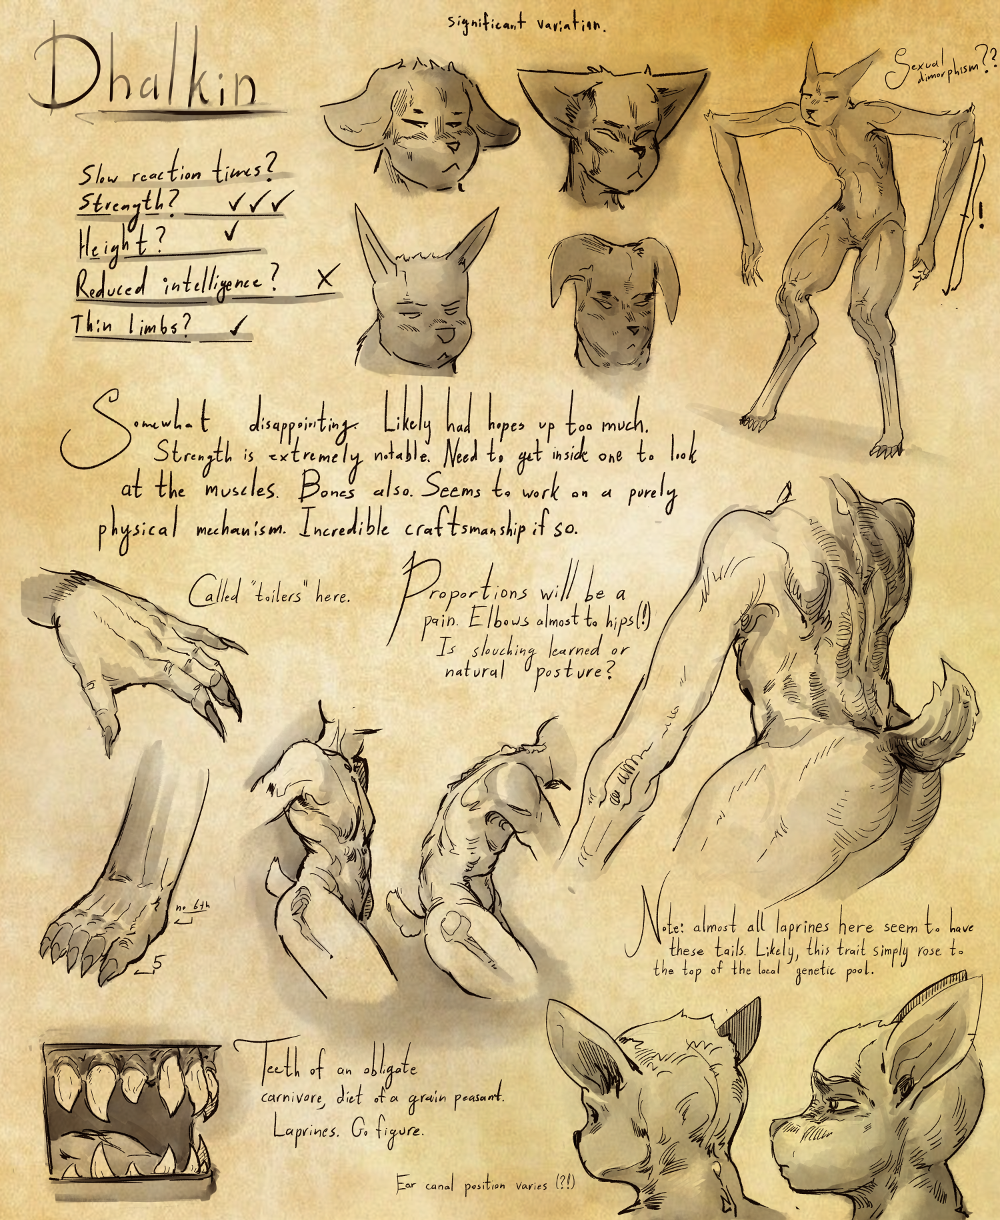 significant variation.
Dhalkin
Sexual
dimorphism??
Slow reaction times?
Strength? ✓✓✓
Height? ✓
Reduced intelligence? X
Thin limbs? ✓
!
Somewhat disappointing. Likely had hopes up too much.
Strength is extremely notable. Need to get inside one to look
at the muscles. Bones also. Seems to work on a purely
physical mechanism. Incredible craftsmanship if so.
Called "toilers" here.
Proportions will be a
pain. Elbows almost to hips(!)
Is slouching learned or
natural posture?
no 6th
5
Note: almost all laprines here seem to have
these tails. Likely, this trait simply rose to
the top of the local genetic pool.
Teeth of an obligate
carnivore, diet of a grain peasant.
Laprines. Go figure.
Ear canal position varies (?!)